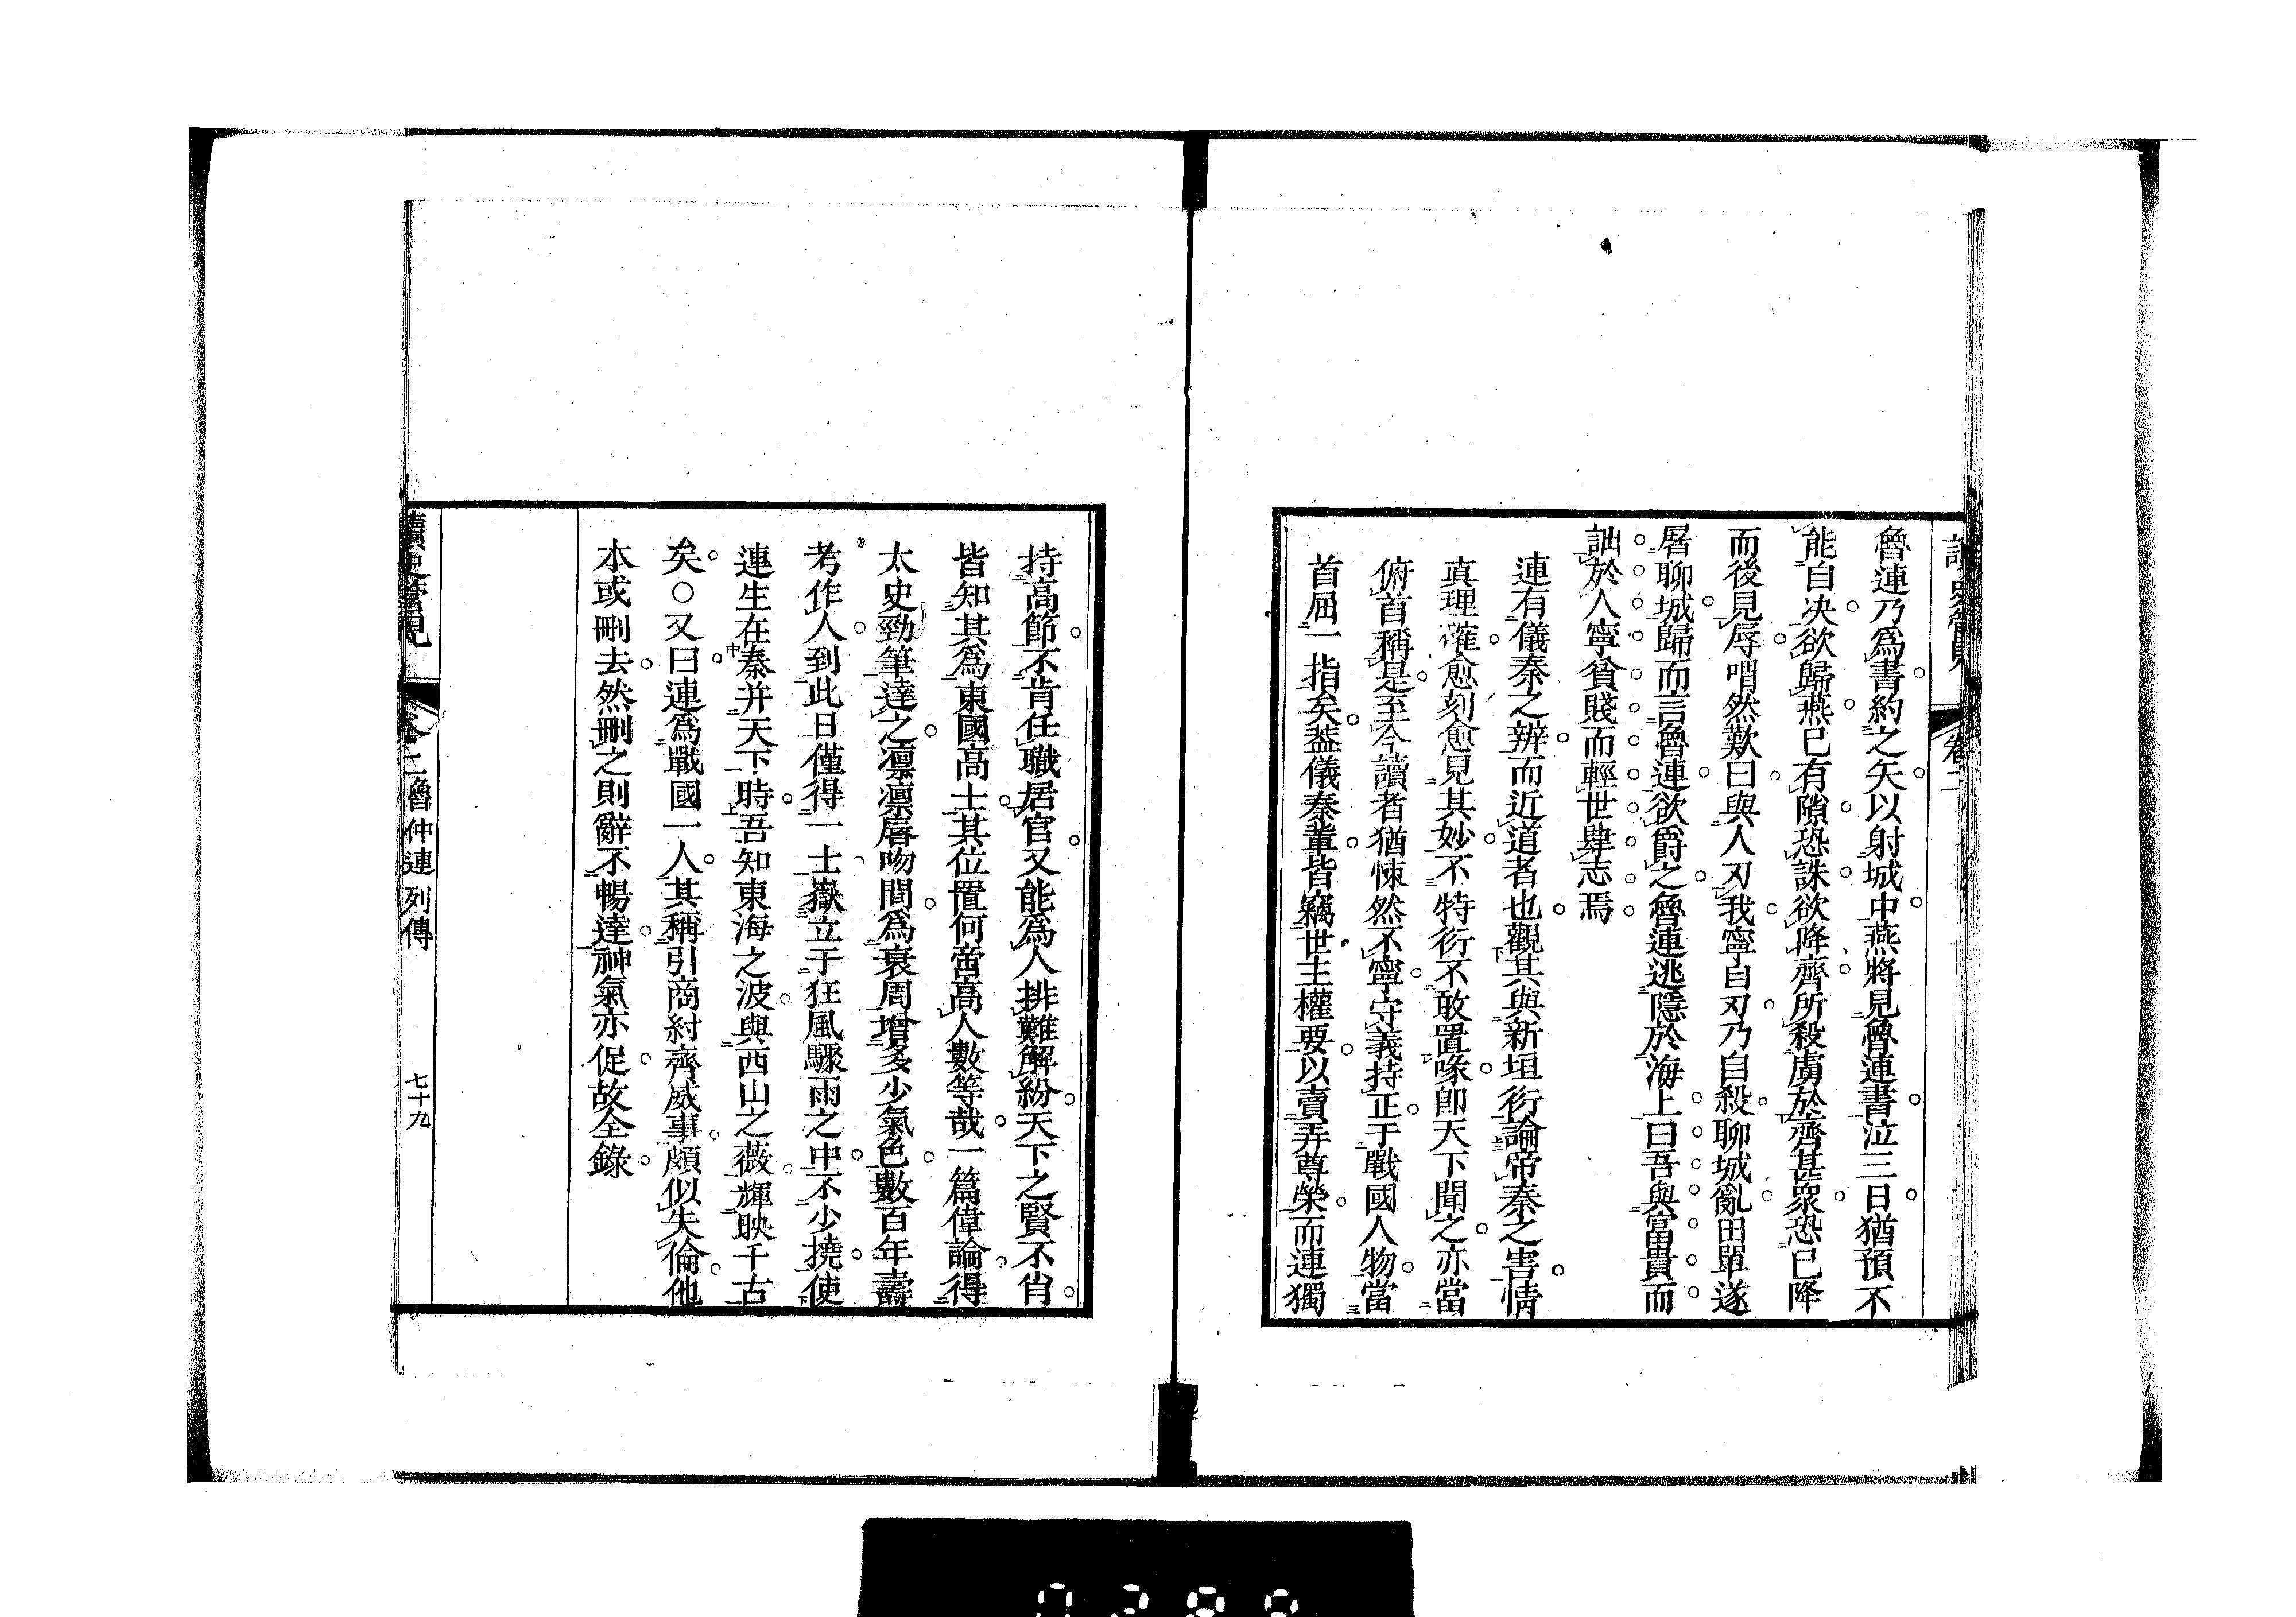 卷二
魯連乃爲書約之矢以射城中燕將見魯連書泣三日猶預不
能自决欲歸燕已有隙恐誅欲降齊所殺虜於齊甚衆恐已降
而後見辱喟然歎曰與人刃我寧自刃乃自殺聊城亂田單遂
屠聊城歸而言魯連欲爵之魯連逃隱於海上曰吾與富貴而
詘於人寧貧賤而輕世肆志焉
連有儀秦之辨而近道者也觀其與新垣衍論帝秦之害情
真理確愈刻愈見其妙不特衍不敢置喙即天下聞之亦當
俯首稱是至今讀者猶悚然不寧守義持正于戰國人物當
首屈一指矣葢儀秦輩皆竊世主權要以賣弄尊榮而連獨
持高節不肯任職居官又能爲人排難解紛天下之賢不肖
皆知其爲東國高士其位置何啻高人數等哉一篇偉論得
太史勁筆達之凛凛唇吻間爲衰周增多少氣色數百年壽
考作人到此日僅得一士嶽立于狂風驟雨之中不少撓使
連生在秦并天下時吾知東海之波與西山之薇輝映千古
矣○又曰連爲戰國一人其稱引商紂齊威事頗似失倫他
本或刪去然刪之則辭不暢達神氣亦促故全錄
讀史管見 卷二 魯仲連列傳 七十九